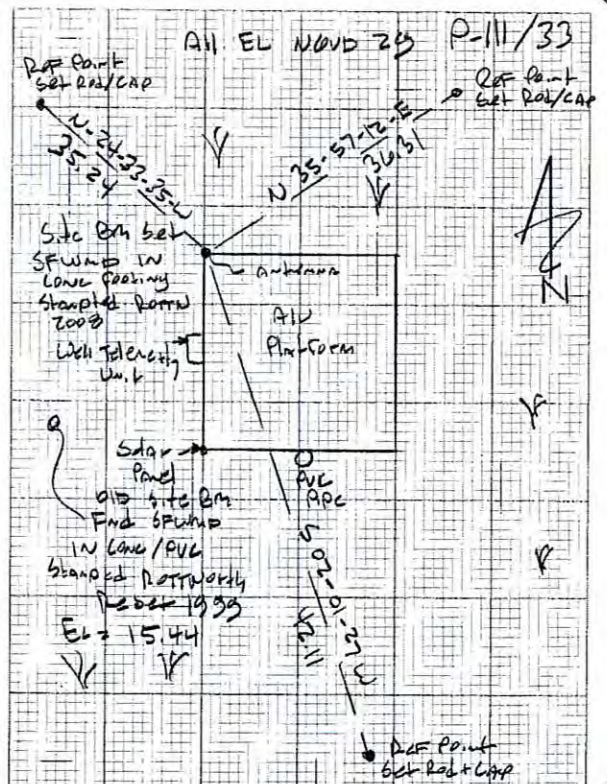 All EL NGVD 29
P-111/33
Ref Point
Set Rod/CAP
Ref Point
Set Rod/CAP
N-24-33-35-W
35.24
N 35-57-12-E
36.31
Site BM Set
SFWMD IN
Conc footing
Stampted ROTTN
2008
Antenna
Well Telemetry
Unit
Platform
N
Solar
Panel
PVC
Pipe
OLD Site BM
Fnd SFWMD
IN Conc/PVC
Stampted ROTTNorth
1999
EL = 15.44
42.11
Ref Point
Set Rod+CAP